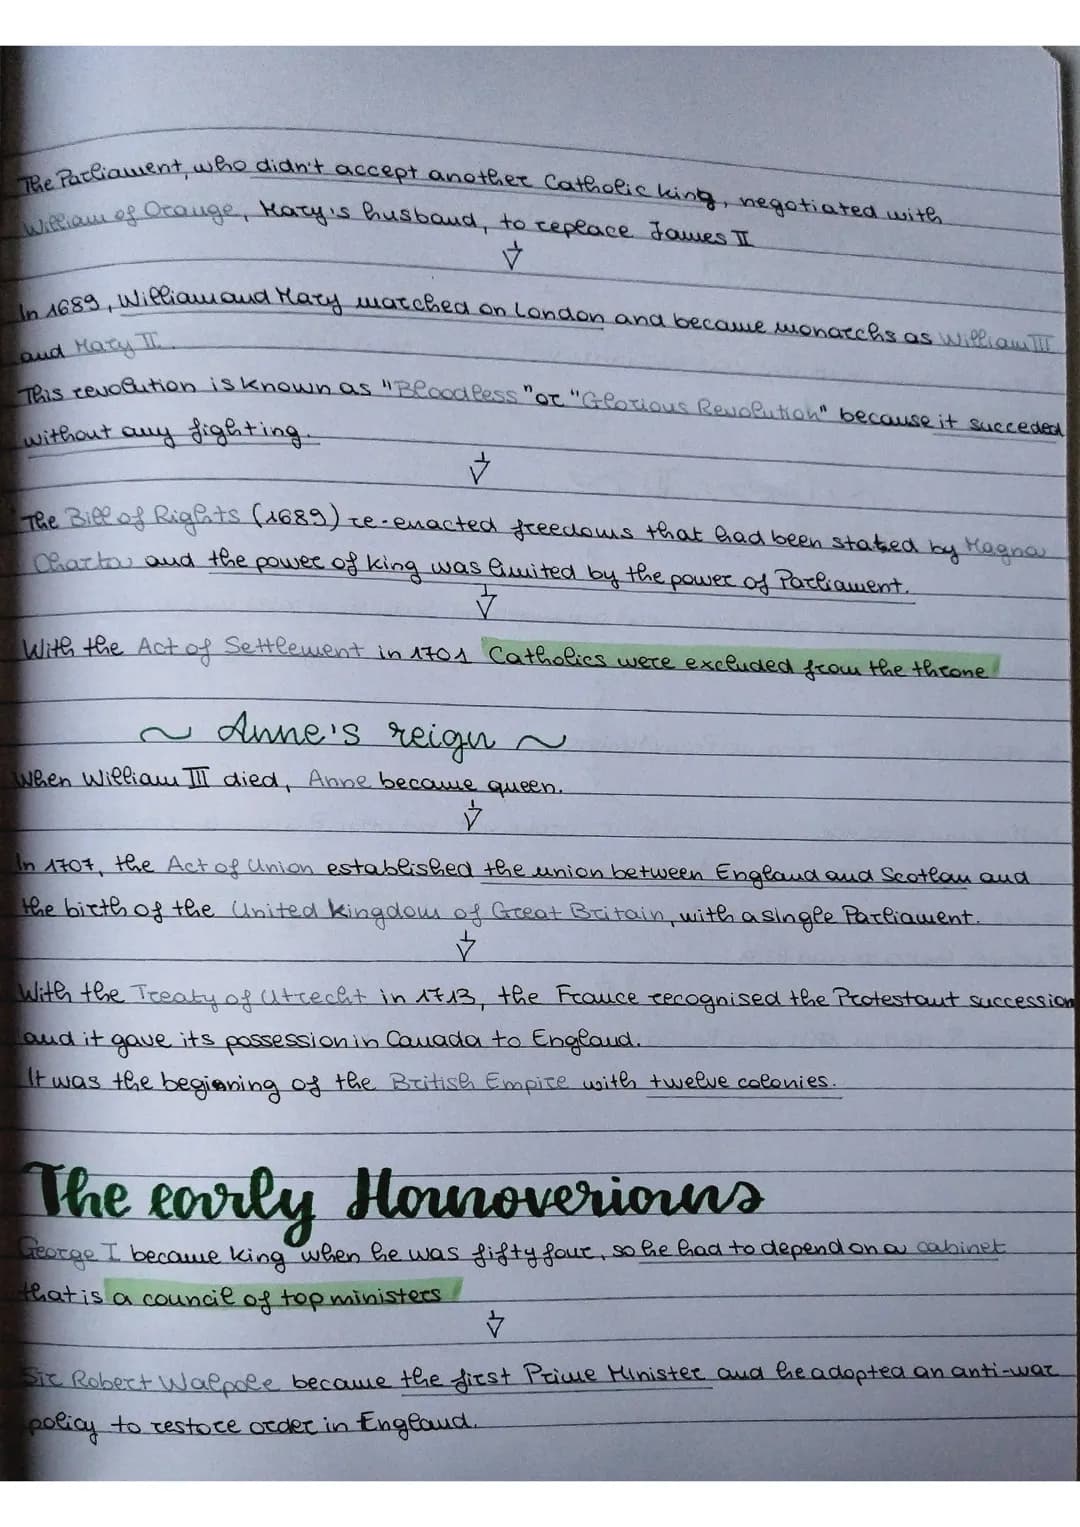 The Parliament, who didn't accept another Catholic king, negotiated with
William of Orange, Mary's husband, to replace James II
In 1689, William and Mary marched on London and became monarchs as William III
and Mary II.
This revolution is known as "Bloodless" or "Glorious Revolution" because it succeded
without any fighting.
The Bill of Rights (1689) re-enacted freedoms that had been stated by Magna
Charta and the power of king was limited by the power of Parliament.
With the Act of Settlement in 1701 Catholics were excluded from the throne
~ Anne's reign ~
When William III died, Anne became queen.
In 1707, the Act of Union established the union between England and Scotlan and
the birth of the United Kingdom of Great Britain, with a single Parliament.
With the Treaty of Utrecht in 1713, the France recognised the Protestant succession
and it gave its possession in Canada to England.
It was the beginning of the British Empire with twelve colonies.
The early Hannoverians
George I became king when he was fifty four, so he had to depend on a cabinet
that is a council of top ministers
Sir Robert Walpole became the first Prime Minister and he adopted an anti-war
policy to restore order in England.